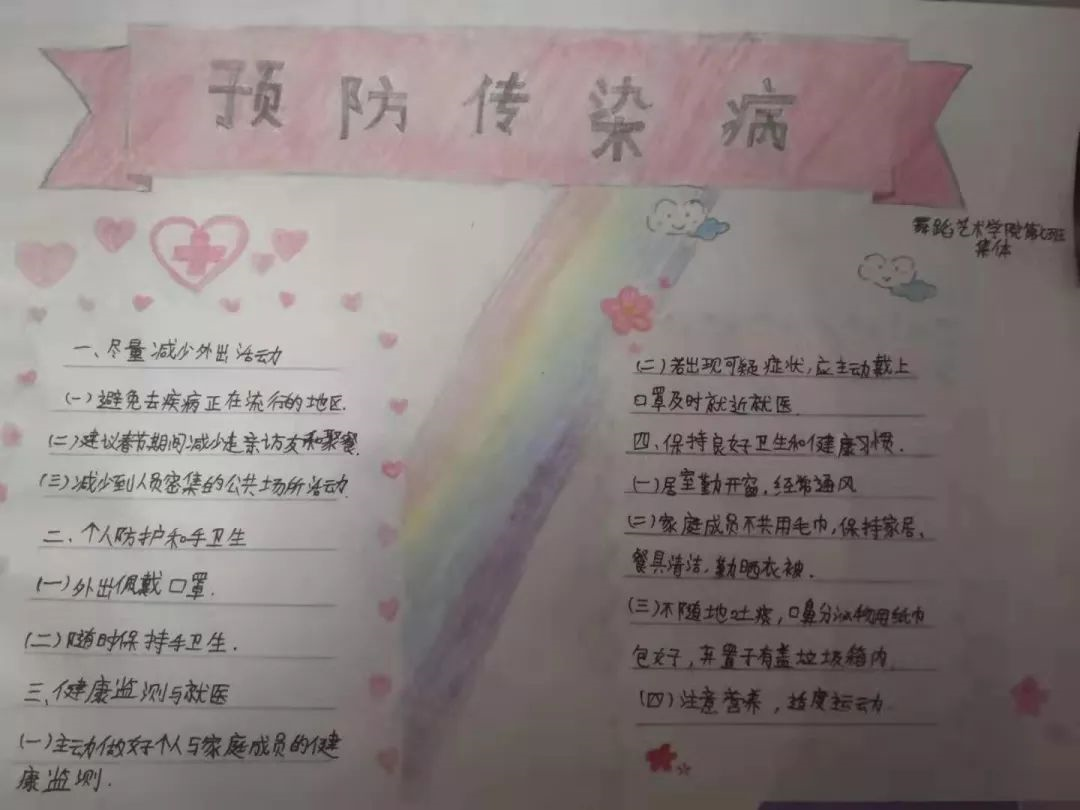 预防传染病
舞蹈艺术学院第七班
集体
一、尽量减少外出活动
(一)避免去疾病正在流行的地区.
(二)建议春节期间减少走亲访友和聚餐.
(三)减少到人员密集的公共场所活动.
二、个人防护和手卫生
(一)外出佩戴口罩.
(二)随时保持手卫生.
三、健康监测与就医
(一)主动做好个人与家庭成员的健
康监测.
(二)若出现可疑症状,应主动戴上
口罩及时就近就医.
四、保持良好卫生和健康习惯.
(一)居室勤开窗,经常通风
(二)家庭成员不共用毛巾,保持家居、
餐具清洁,勤晒衣被.
(三)不随地吐痰,口鼻分泌物用纸巾
包好,弃置于有盖垃圾箱内
(四)注意营养,适度运动